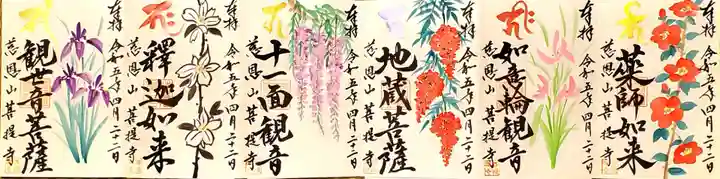 奉拝
令和五年四月二十二日
観世音菩薩
慈恩山 菩提寺
奉拝
令和五年四月二十二日
釋迦如来
慈恩山 菩提寺
奉拝
令和五年四月二十二日
十一面観音
慈恩山 菩提寺
奉拝
令和五年四月二十二日
地蔵菩薩
慈恩山 菩提寺
奉拝
令和五年四月二十二日
如意輪観音
慈恩山 菩提寺
奉拝
令和五年四月二十二日
薬師如来
慈恩山 菩提寺